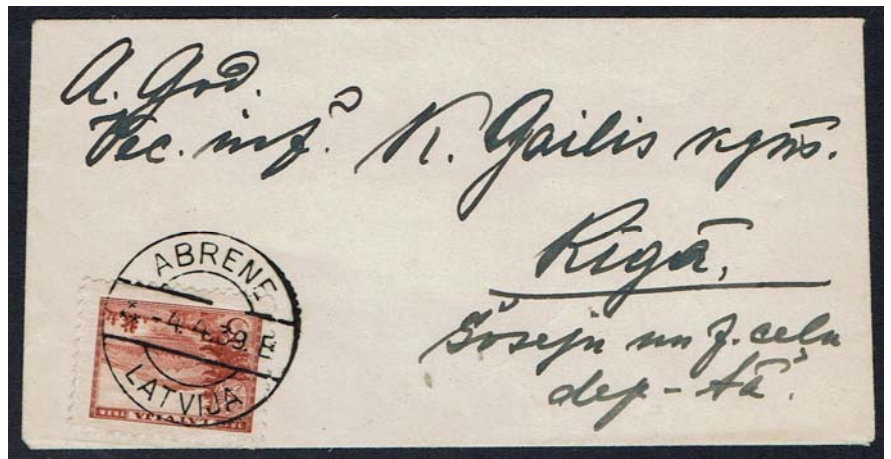 A. God.
Vec. inž. K. Gailis kgns.
Rīgā,
Šoseju un z. ceļu
dep-tā.
ABRENE
-4.4.39. B
LATVIJA
LATVIJA